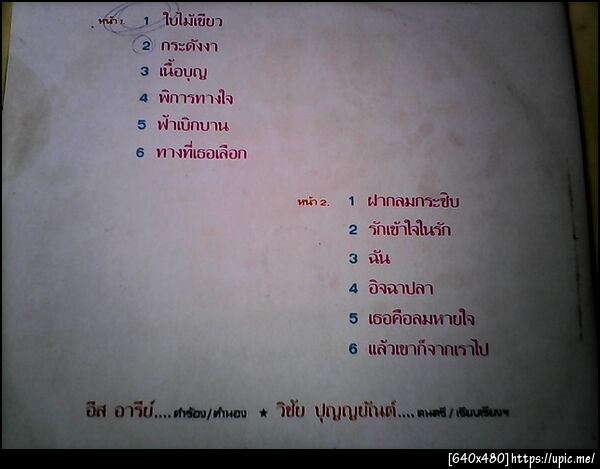 หน้า 1. 1 ใบไม้เขียว
2 กระดังงา
3 เนื้อบุญ
4 พิการทางใจ
5 ฟ้าเบิกบาน
6 ทางที่เธอเลือก
หน้า 2. 1 ฝากลมกระซิบ
2 รักเข้าใจในรัก
3 ฉัน
4 อิจฉาปลา
5 เธอคือลมหายใจ
6 แล้วเขาก็จากเราไป
อีส อารีย์....คำร้อง/ทำนอง ★ วิชัย ปุญญยันต์....ดนตรี / เรียบเรียงฯ
[640x480]https://upic.me/